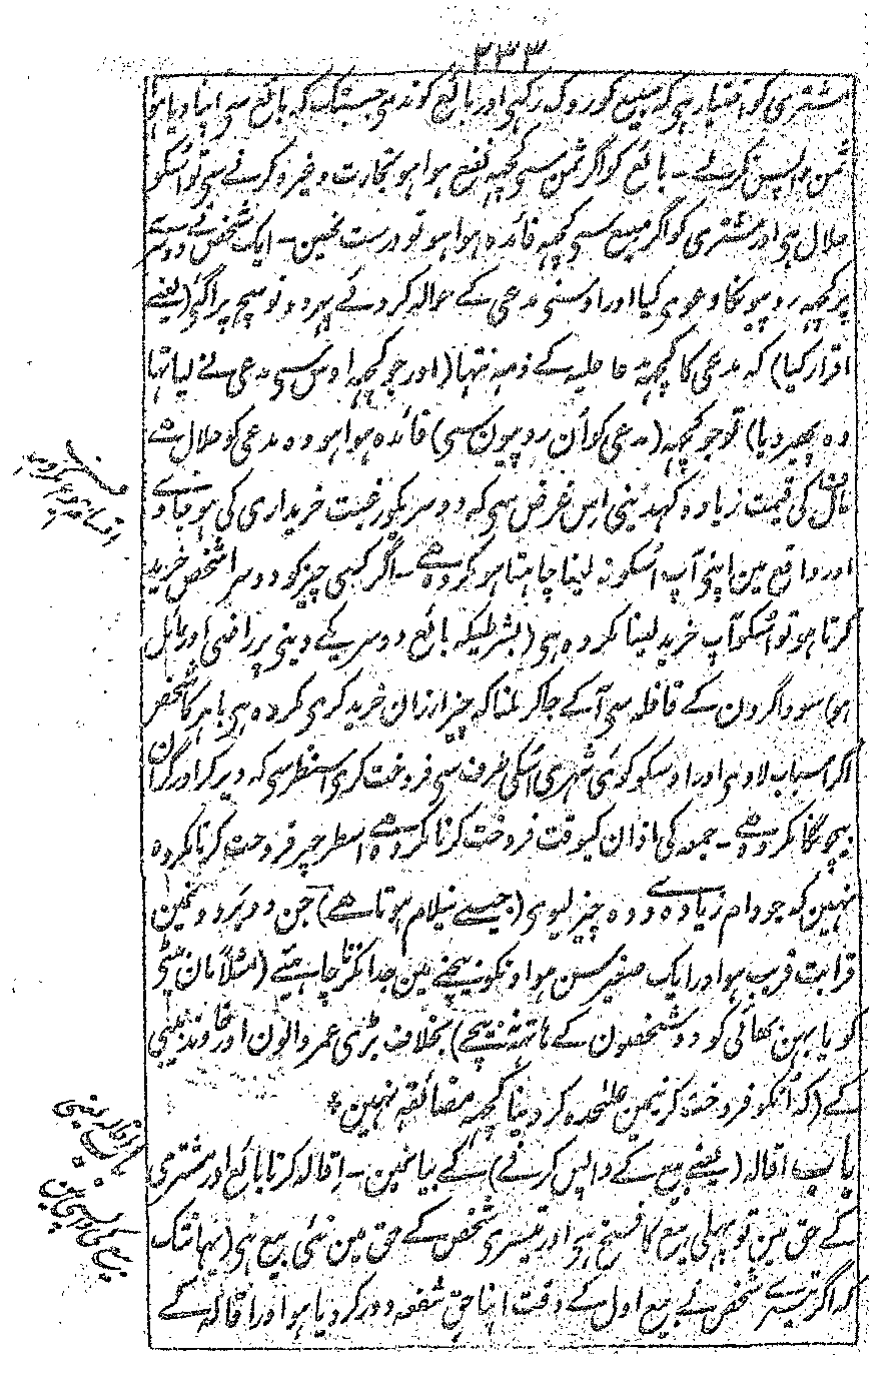 ۲۳۳
مشتری کو اختیار ہی کہ مبیع کو روک رکہی اور بائع کو ندی جبتک کہ بائع سی اپنا دیا ہوا
ثمن واپس کرلے ۔ بائع کو اگر ثمن سی کچہہ نفع ہوا ہو تجارت وغیرہ کرنے سی تو اُسکو
حلال ہی اور مشتری کو اگر مبیع سی کچہہ فائدہ ہوا ہو تو درست نہین ۔ ایک شخص نے دوسرے
پر کچہہ روپیونکا دعوی کیا اور اوسنی مدعی کے حوالہ کردئے پہر دونو سچ پر آگئی (یعنے
اقرار کیا) کہ مدعی کا کچہہ مدعا علیہ کے ذمہ نتہا (اور جو کچہہ اوس سی مدعی نے لیا تہا
وہ پھیر دیا) تو جو کچہہ (مدعی کو اُن روپیون سی) فائدہ ہوا ہو وہ مدعی کو حلال ہے
مال کی قیمت زیادہ کہدینی اس غرض سی کہ دوسریکو رغبت خریداری کی ہو جاوے
اور واقع مین اپنی آپ اُسکو نہ لینا چاہتا ہو مکروہ ہے ۔ اگر کسی چیز کو دوسرا شخص خرید
کرتا ہو تو اُسکو آپ خرید لینا مکروہ ہی (بشرطیکہ بائع دوسریکے دینی پر راضی اور مائل
ہو) سوداگرون کے قافلہ سی آگے جاکر ملنا کہ چیز ارزان خرید کری مکروہ ہی باہر کا شخص
اگر اسباب لاوی اور اوسکو کوئی شہری اُسکی طرف سی فروخت کری اسنظر سی کہ دیر کر اور گران
بیچونگا مکروہ ہے ۔ جمعہ کی اذان کیوقت فروخت کرنا مکروہ ہے اسطرحپر فروخت کرنا مکروہ
نہین کہ جو دام زیادہ دے وہ چیز لیوی (جیسے نیلام ہوتا ہے) جن دو بردونمین
قرابت قریب ہو اور ایک صغیر سن ہو اونکو بیچنے مین جدا نکرنا چاہئیے (مثلاً مان بیٹی
کو یا بہن بھائی کو دو شخصون کے ہاتہہ نہ بیچے) بخلاف بڑی عمر والون اور خاوند بیبی
کے (کہ اُنکو فروخت کرنیمین علیحدہ کردینا کچہہ مضائقہ نہین *
باب اقالہ (یعنے بیع کے واپس کرنے) کے بیانمین ۔ اقالہ کرنا بائع اور مشتری
کے حق مین تو پہلی بیع کا فسخ ہی اور تیسری شخص کے حق مین نئی بیع ہی (یہانتک
کہ اگر تیسرے شخص نے بیع اول کے وقت اپنا حق شفعہ دور کردیا ہو اور اقالہ کے
باب اقالہ یعنی
بیع کی واپسی کا بیان